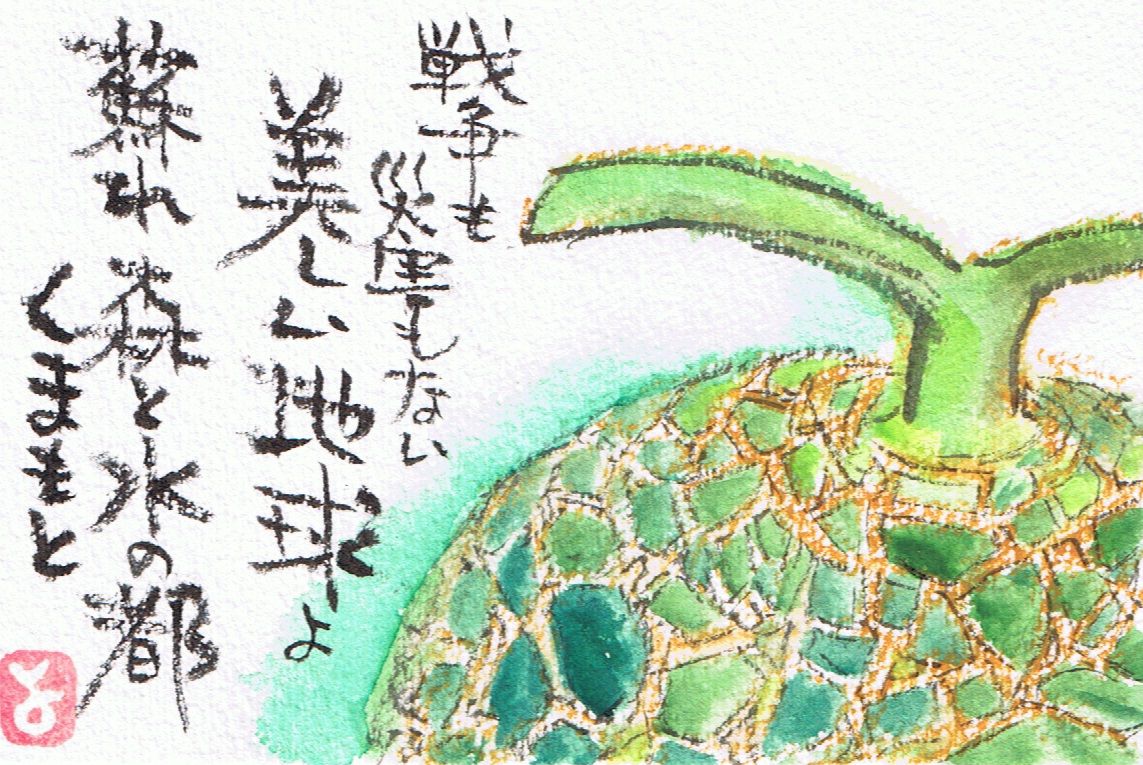 戦争も
災害もない
美しい地球よ
蘇れ 森と水の都
くまもと